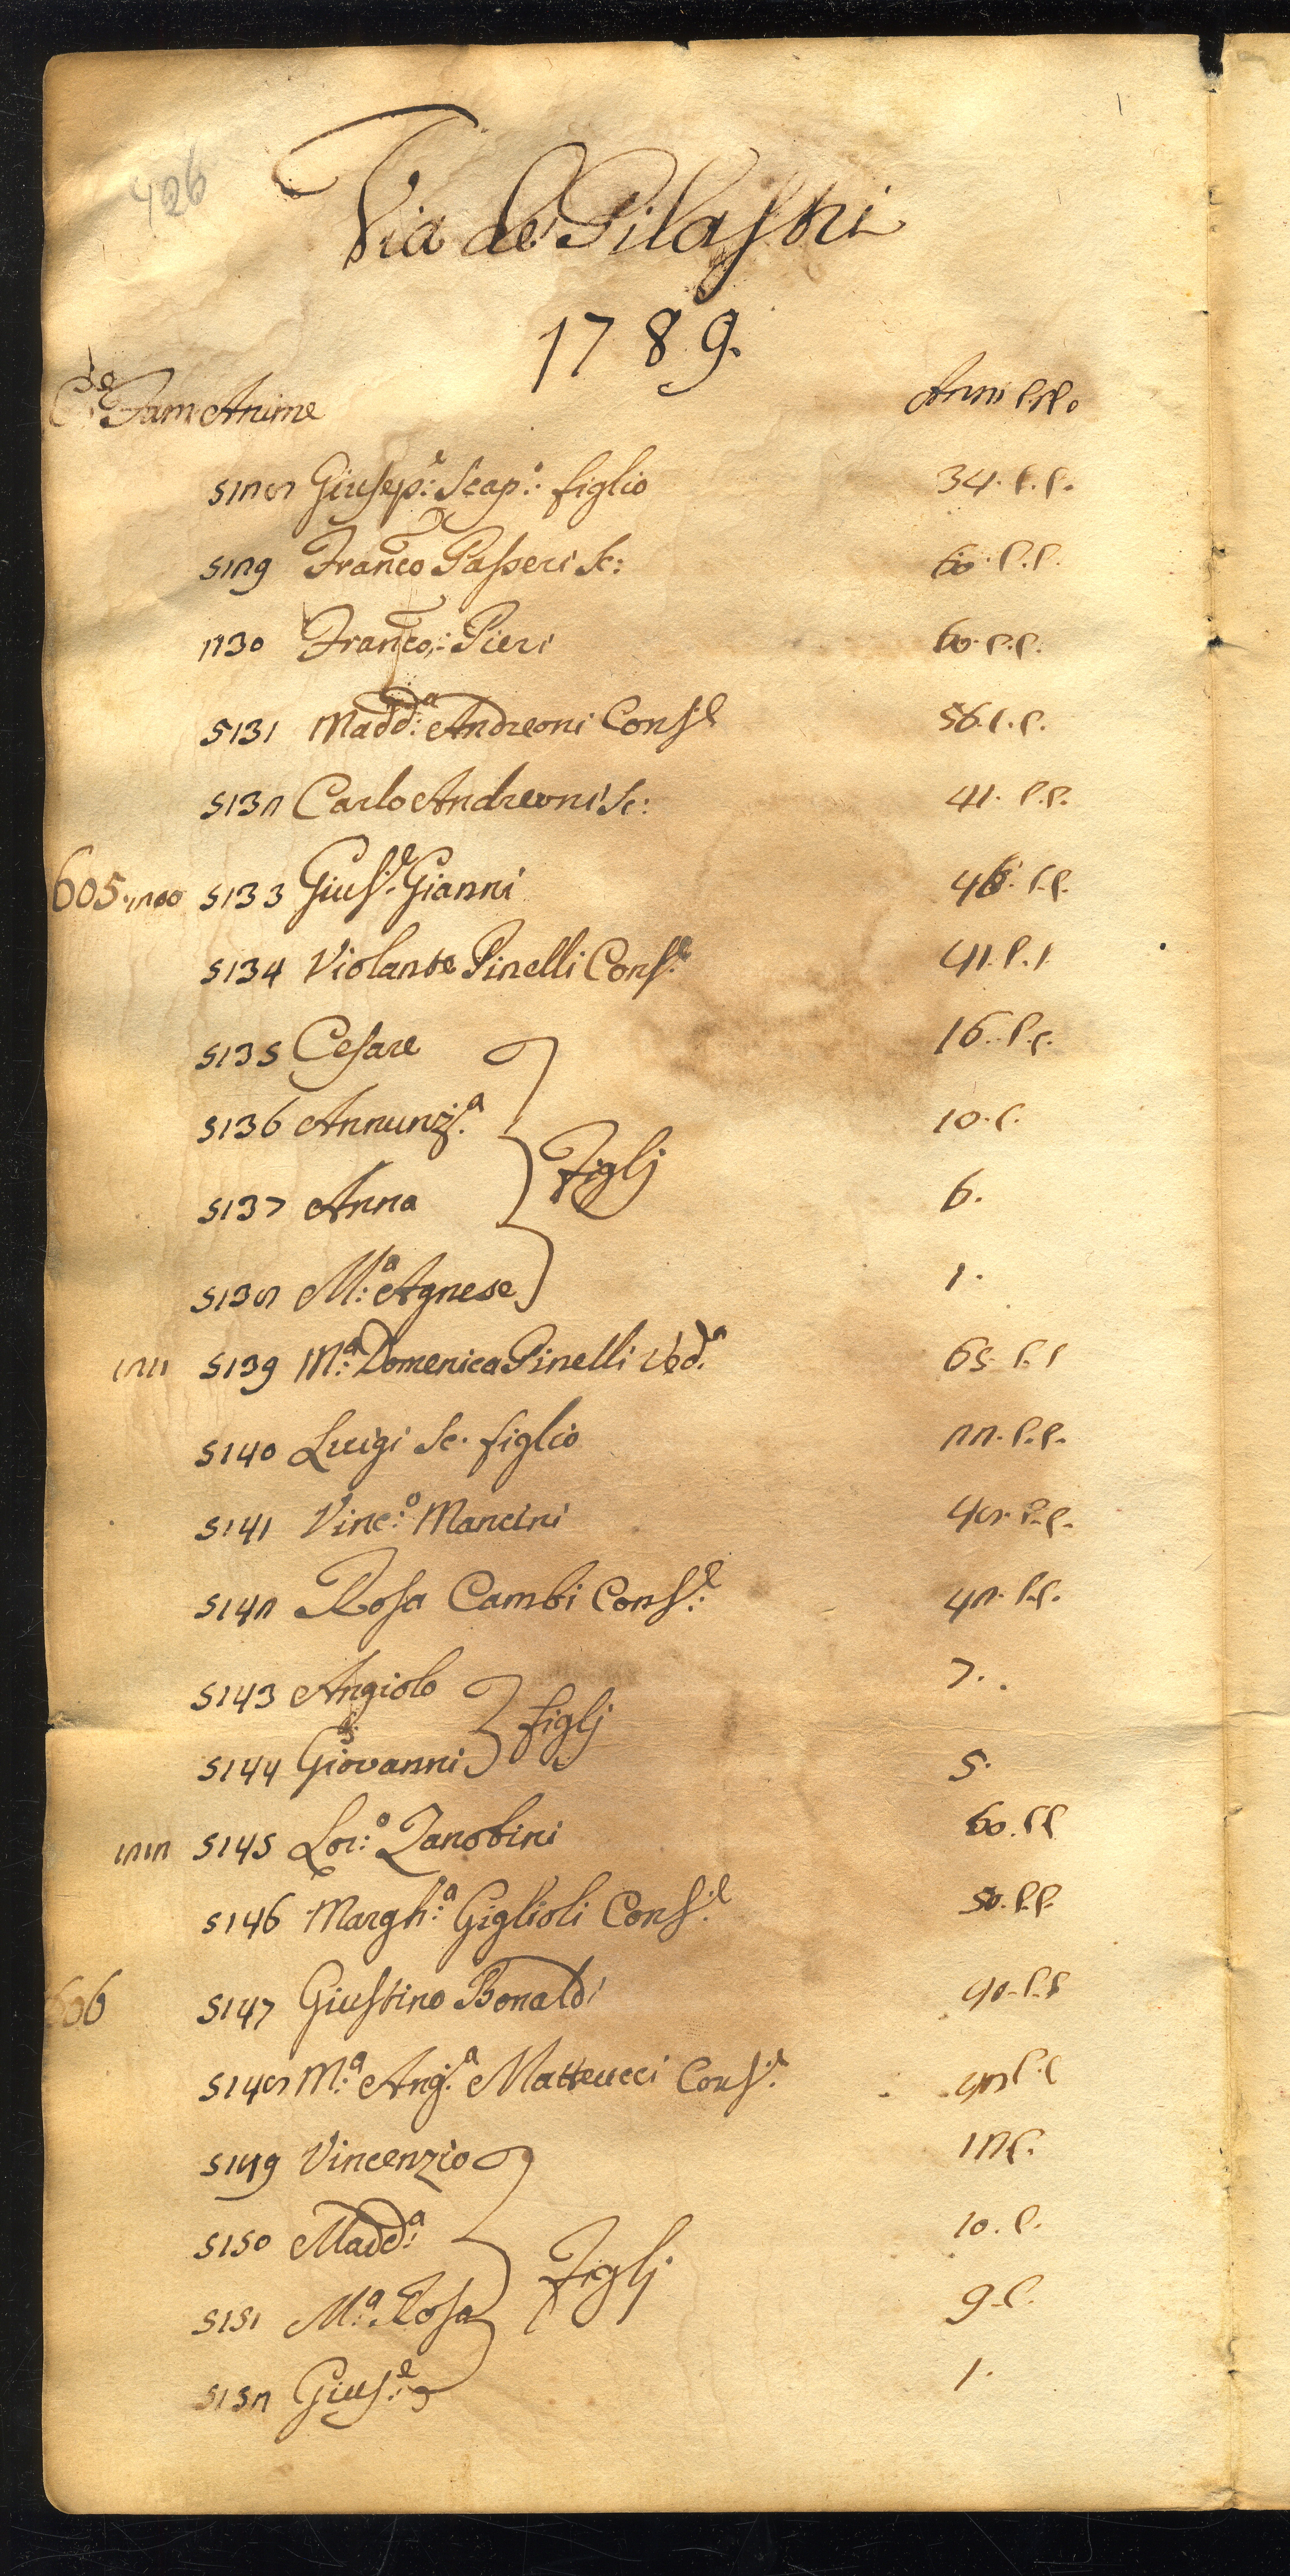 426
Via de' Pilastri
1789.
C.e Fam Anime Anni
5128 Giusep.e Scap.o figlio 34. C.C.
5129 Franco Passeri Sc: 60. C.C.
5130 Franco: Pieri 60. C.C.
5131 Madd:a Andreoni Cons.e 56. C.C.
5132 Carlo Andreoni Sc: 41. C.C.
605 1210 5133 Gius.e Gianni 46. C.C.
5134 Violante Pinelli Cons.e 41. C.C
5135 Cesare 16. C.C.
5136 Annunz.a 10. C.
Figlj
5137 Anna 6.
5138 M:a Agnese 1.
1211 5139 M:a Domenica Pinelli Ved.a 65. C.C
5140 Luigi Sc. figlio 22. C.C.
5141 Vinc:o Mancini 48. C.C.
5142 Rosa Cambi Cons.e 42. C.C.
5143 Angiolo 7.
figlj
5144 Giovanni 5.
1212 5145 Lor:o Zanobini 60. C.C
5146 Margh:a Giglioli Cons.e 50. C.C.
606 5147 Giustino Bonaldi 40. C.C
5148 M:a Ang.a Matteucci Cons.e 42 C.C
5149 Vincenzio 12 C.
5150 Madd:a 10. C.
Figlj
5151 M:a Rosa 9. C.
5152 Gius:e 1.